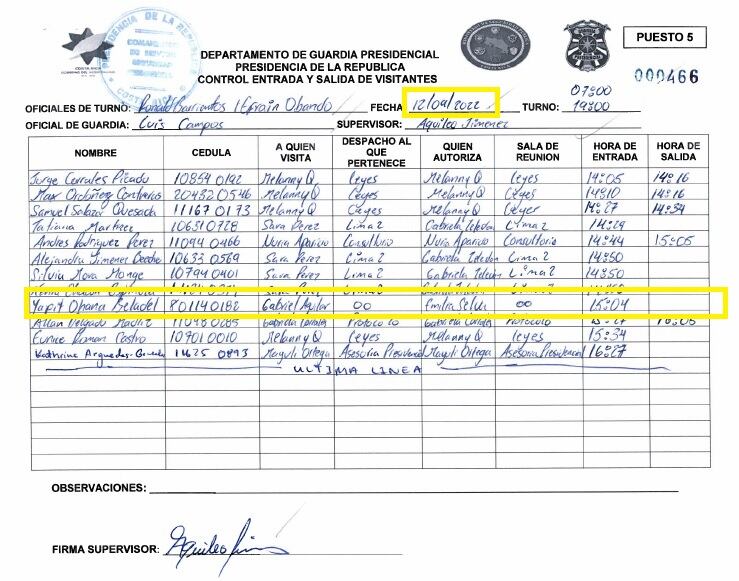 PRESIDENCIA DE LA REPUBLICA
COSTA RICA
DEPARTAMENTO DE GUARDIA PRESIDENCIAL
PRESIDENCIA DE LA REPUBLICA
CONTROL ENTRADA Y SALIDA DE VISITANTES
PUESTO 5
000466
OFICIALES DE TURNO: Ronald Barrientos / Efrain Obando FECHA 12/04/2022 TURNO: 07:00 19:00
OFICIAL DE GUARDIA: Luis Campos SUPERVISOR: Aquileo Jimenez
NOMBRE CEDULA A QUIEN VISITA DESPACHO AL QUE PERTENECE QUIEN AUTORIZA SALA DE REUNION HORA DE ENTRADA HORA DE SALIDA
Jorge Corrales Picado 10854 0192 Melanny Q Leyes Melanny Q Leyes 14:05 14:16
Max Ordoñez Contreras 20432 0546 Melanny Q Leyes Melanny Q Leyes 14:10 14:16
Samuel Salazar Quesada 11167 0173 Melanny Q Leyes Melanny Q Leyes 14:27 14:34
Tatiana Martinez 10631 0728 Sara Perez Lima 2 Gabriela 14:29
Andres Rodriguez Perez 11094 0466 Nuria Aparicio Consultorio Nuria Aparicio Consultorio 14:44 15:05
Alejandra Jimenez 10633 0569 Sara Perez Lima 2 Gabriela Lima 2 14:50
Silvia Mora Monge 10794 0401 Sara Perez Lima 2 Gabriela Lima 2 14:50
Yafit Ohana 801140182 Gabriel Aguilar 00 Emilia 00 15:04
Allan Delgado 11048 0285 Gabriela Protocolo Gabriela Protocolo
Eunice Roman Castro 10701 0010 Melanny Q Leyes Melanny Q Leyes 15:34
Kathrine Arguedas 11425 0893 Maguli Ortega Asesoria Presidencial Maguli Ortega Asesoria Presidencial 16:27
ULTIMA LINEA
OBSERVACIONES:
FIRMA SUPERVISOR: